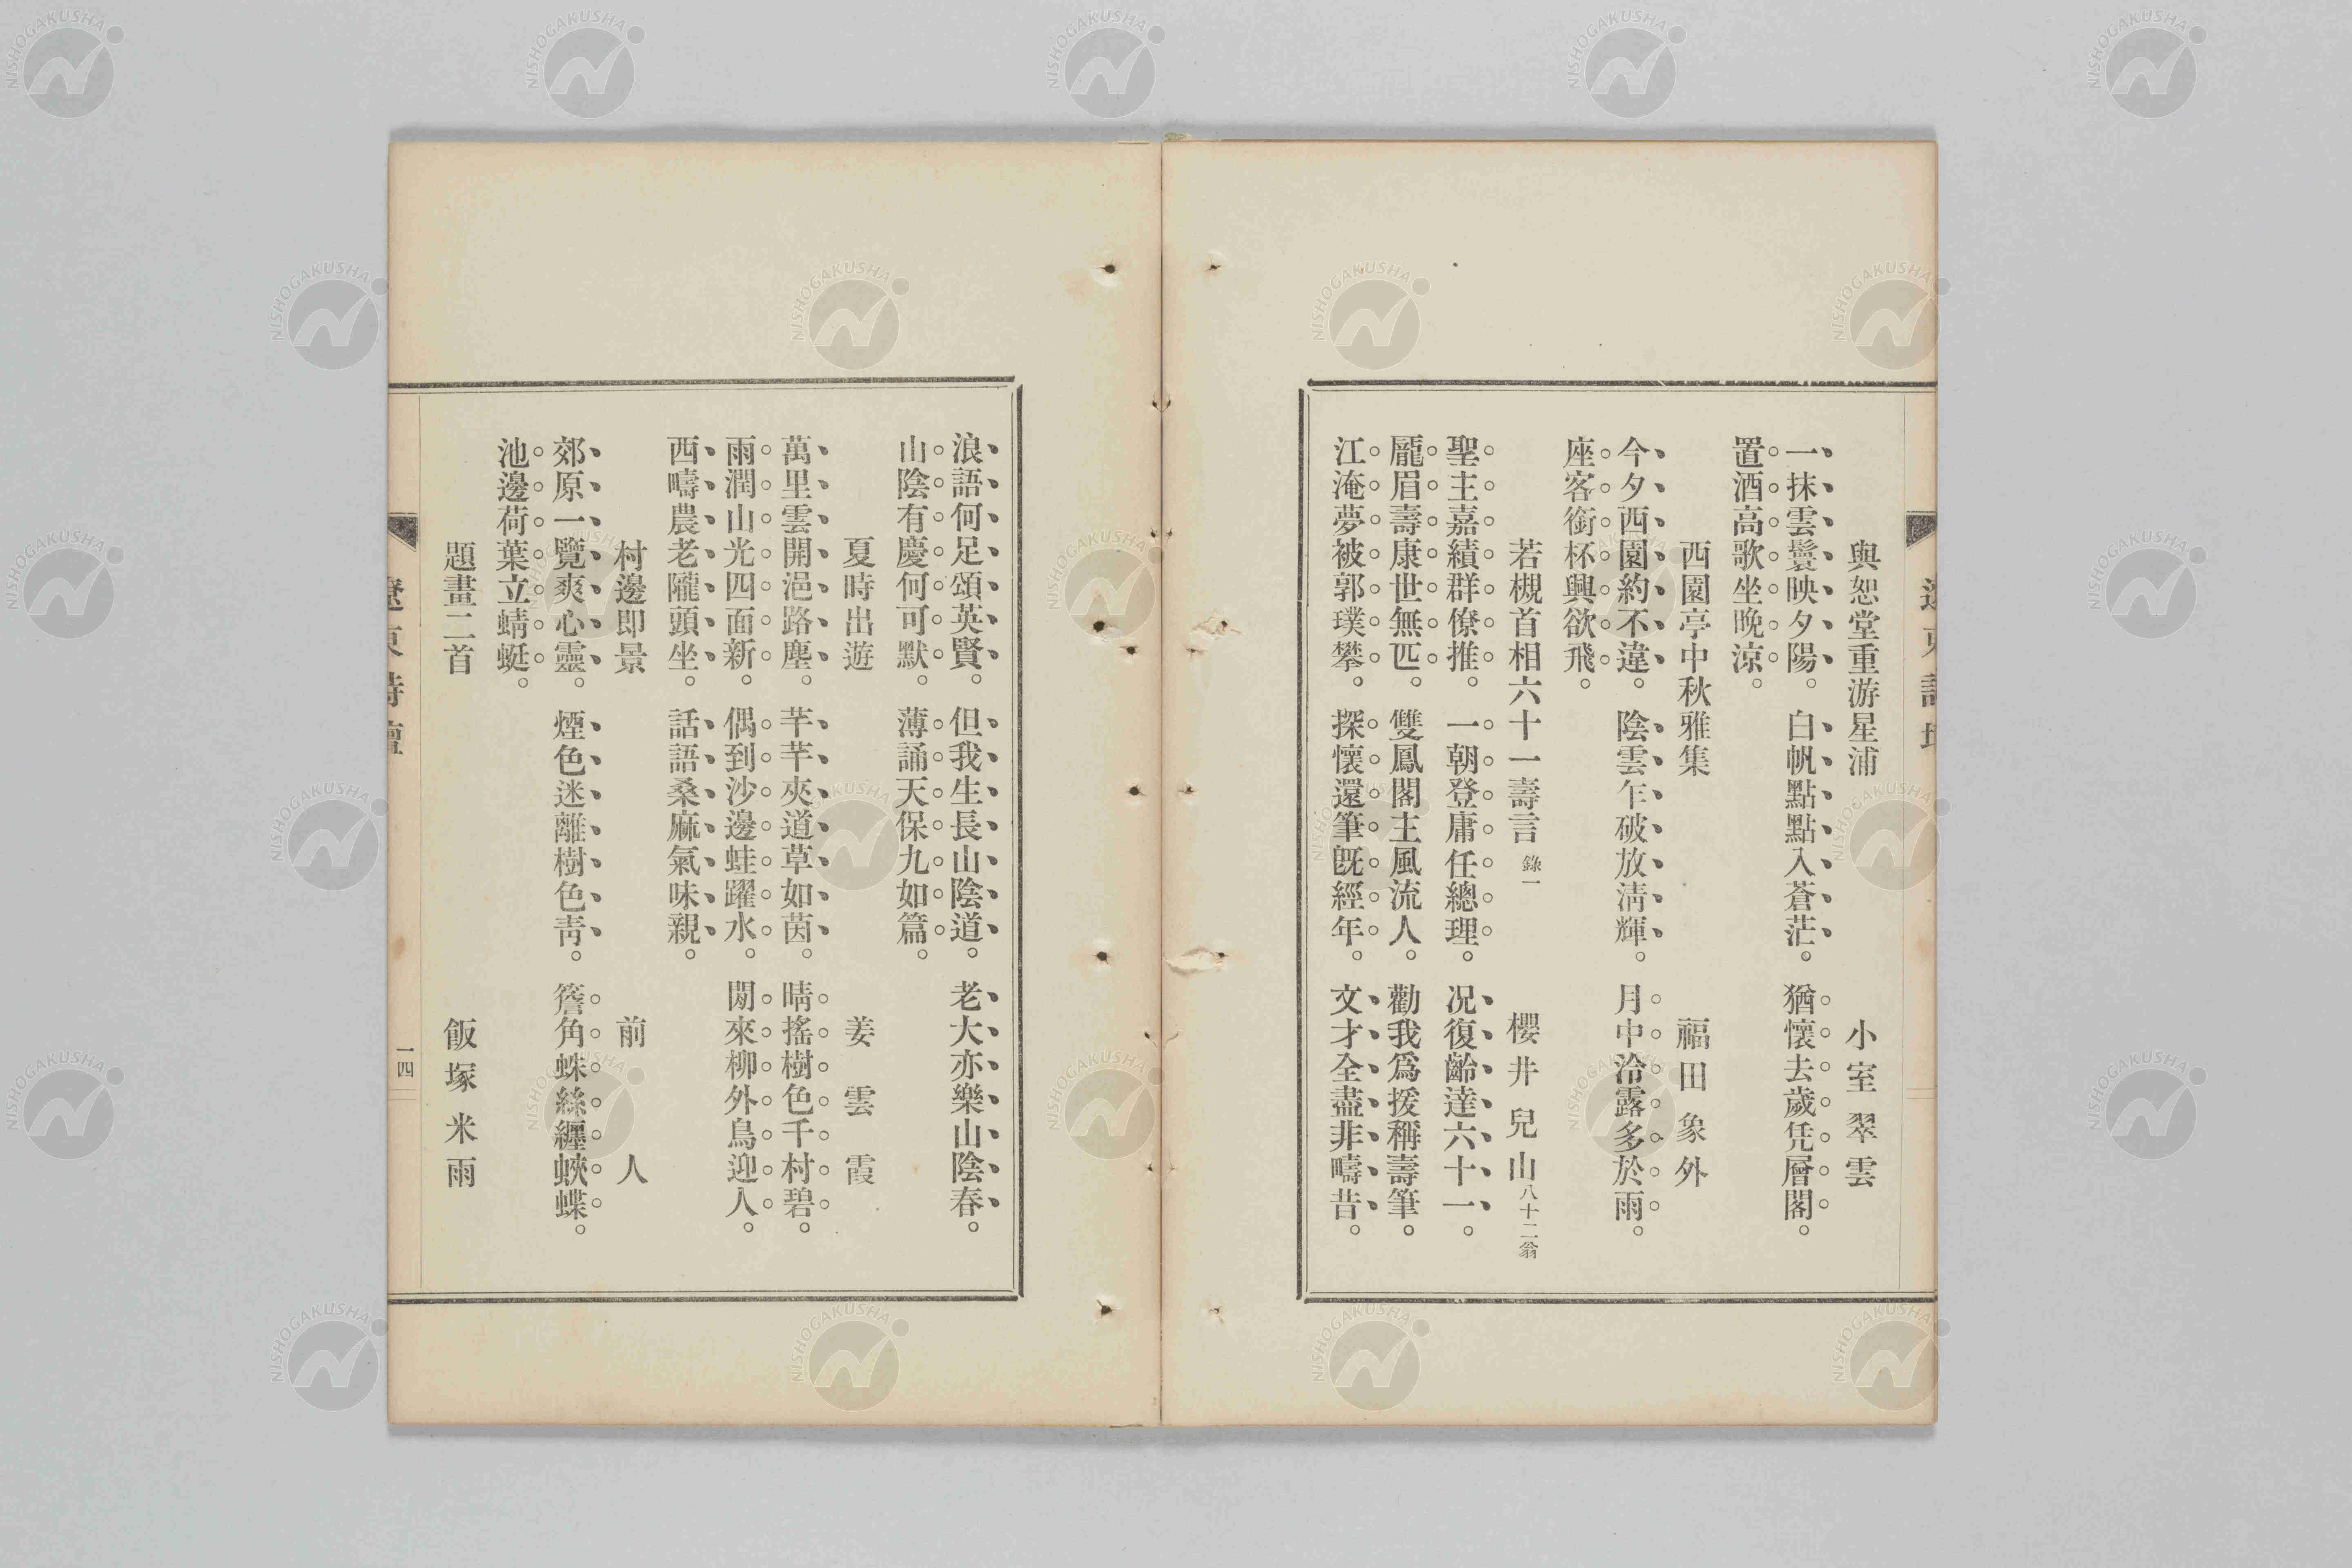 與恕堂重游星浦　小室翠雲
一抹雲鬟映夕陽。白帆點點入蒼茫。猶懷去歲凭層閣。
置酒高歌坐晚涼。
西園亭中秋雅集　福田象外
今夕西園約不違。陰雲乍破放淸輝。月中冷露多於雨。
座客銜杯興欲飛。
若槻首相六十一壽言 錄一　櫻井兒山 八十二翁
聖主嘉績群僚推。一朝登庸任總理。况復齡達六十一。
龐眉壽康世無匹。雙鳳閣主風流人。勸我爲援稱壽筆。
江淹夢被郭璞攀。探懷還筆旣經年。文才全盡非疇昔。
浪語何足頌英賢。但我生長山陰道。老大亦樂山陰春。
山陰有慶何可默。薄誦天保九如篇。
夏時出遊　姜雲霞
萬里雲開浥路塵。芊芊夾道草如茵。晴搖樹色千村碧。
雨潤山光四面新。偶到沙邊蛙躍水。閒來柳外鳥迎人。
西疇農老隴頭坐。話語桑麻氣味親。
村邊即景　前人
郊原一覽爽心靈。煙色迷離樹色靑。簷角蛛絲纒蛺蝶。
池邊荷葉立蜻蜓。
題畫二首　飯塚米雨
一四
NISHOGAKUSHA